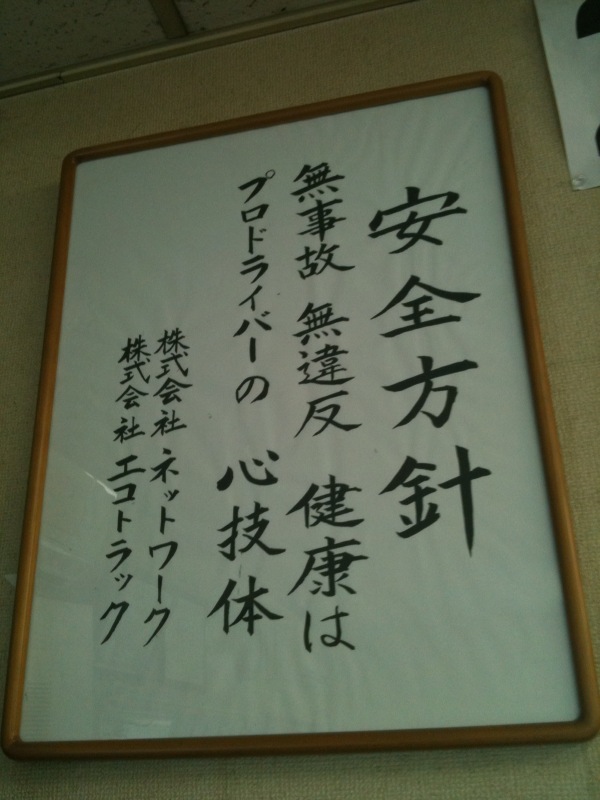 安全方針
無事故 無違反 健康は
プロドライバーの 心技体
株式会社 ネットワーク
株式会社 エコトラック